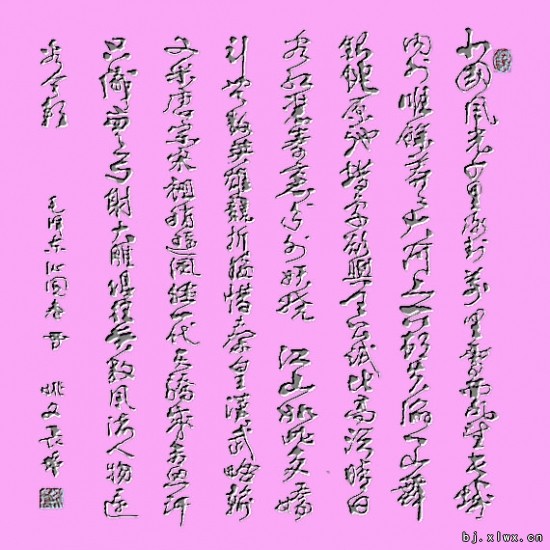 北国风光千里冰封万里雪飘望长城
内外唯余莽莽大河上下顿失滔滔山舞
银蛇原驰蜡象欲与天公试比高须晴日
看红装素裹分外妖娆 江山如此多娇
引无数英雄竞折腰惜秦皇汉武略输
文采唐宗宋祖稍逊风骚一代天骄成吉思汗
只识弯弓射大雕俱往矣数风流人物还
看今朝
毛泽东沁园春雪
bj.xlwx.cn